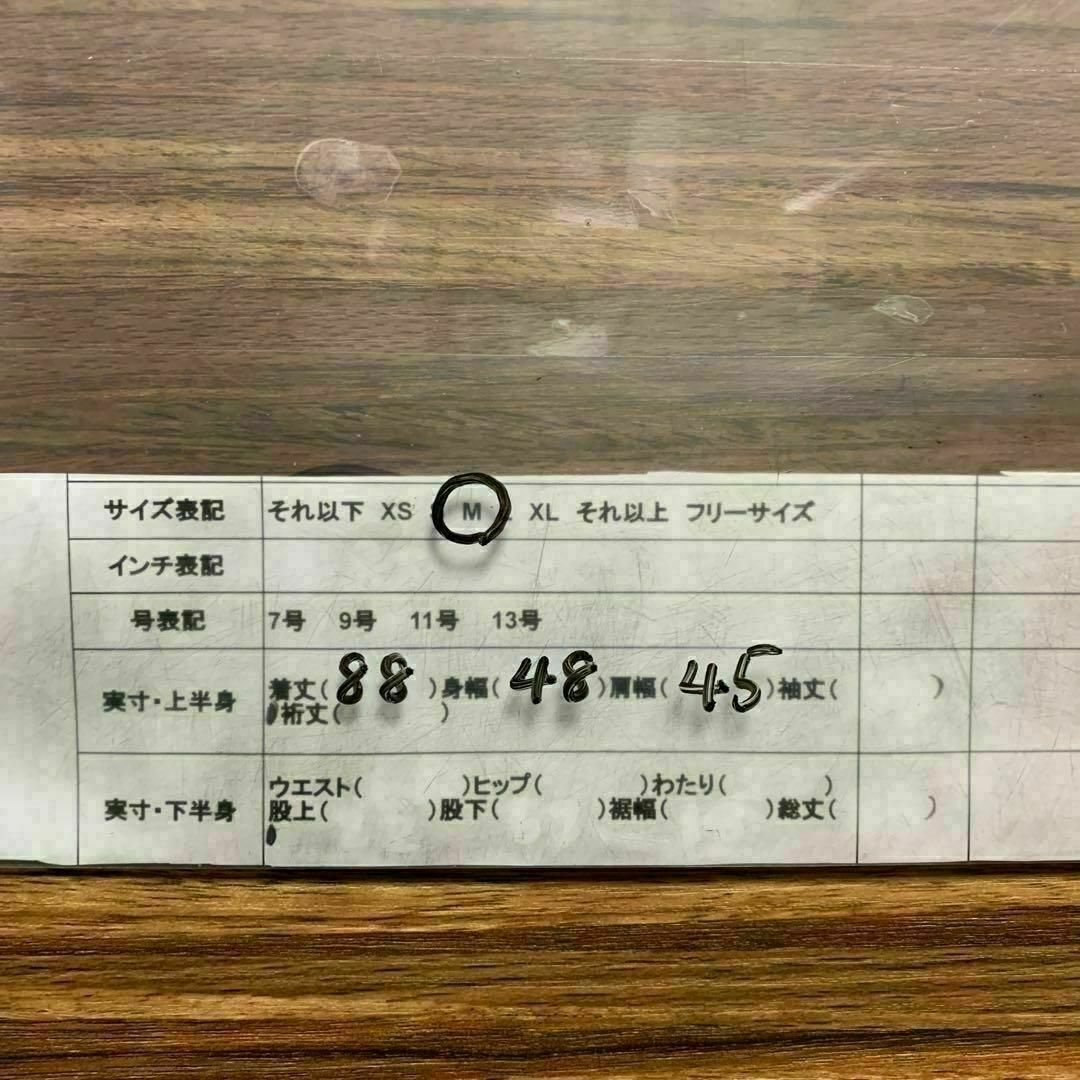 サイズ表記 それ以下 XS M XL それ以上 フリーサイズ
インチ表記
号表記 7号 9号 11号 13号
実寸・上半身 着丈( 88 )身幅( 48 )肩幅( 45 )袖丈( )
裄丈( )
実寸・下半身 ウエスト( )ヒップ( )わたり( )
股上( )股下( )裾幅( )総丈( )